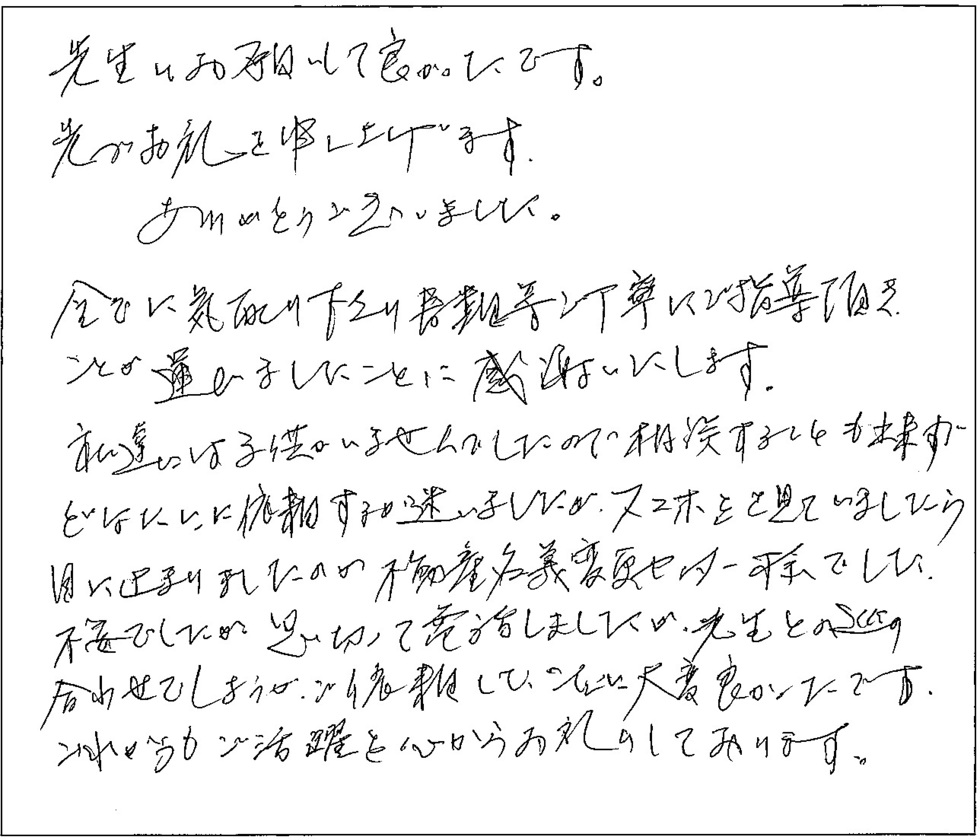 先生にお願いして良かったです。
先づお礼を申し上げます。
ありがとうございました。
全てに気配り下さり書類等ご丁寧にご指導頂き
ことが運びましたことに感謝いたします。
私達には子供がいませんでしたので相談することも出来ず
どなたに依頼するか迷いましたが、スマホを見ていましたら
目に止まりましたのが不動産名義変更センター様でした。
不安でしたが思い切って電話しましたが、先生との
合わせでしょうが、ご依頼して、大変良かったです。
これからもご活躍を心からお祈りしております。